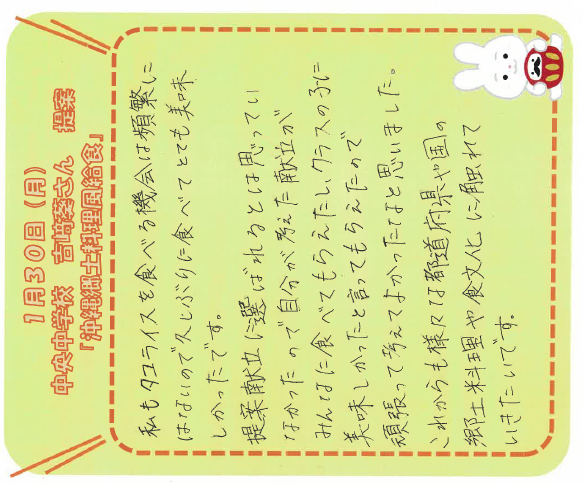 1月30日(月)
中央中学校 吉崎葵さん 提案
「沖縄郷土料理風給食」
私もタコライスを食べる機会は頻繁に
はないので久しぶりに食べてとても美味
しかったです。
提案献立に選ばれるとは思ってい
なかったので自分が考えた献立が
みんなに食べてもらえたし、クラスの子に
美味しかったと言ってもらえたので
頑張って考えてよかったなと思いました。
これからも様々な都道府県や国の
郷土料理や食文化に触れて
いきたいです。